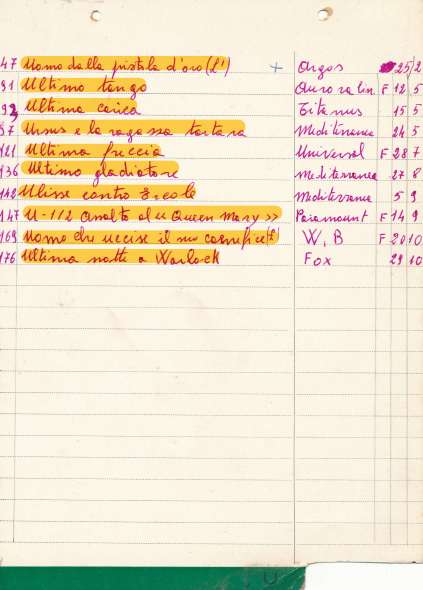 47 Uomo dalla pistola d'oro (L') + Argos 25 2
91 Ultimo tango Aurora lin. F 12 5
92 Ultima carica Titanus 15 5
97 Ursus e la ragazza tartara Mediterranea 24 5
121 Ultima freccia Universal F 28 7
136 Ultimo gladiatore Mediterranea 27 8
142 Ulisse contro Ercole Mediterranea 5 9
147 U-112 assalto al "Queen Mary" >> Paramount F 14 9
169 Uomo che uccise il suo carnefice (L') W. B F 20 10
176 Ultima notte a Warlock Fox 29 10